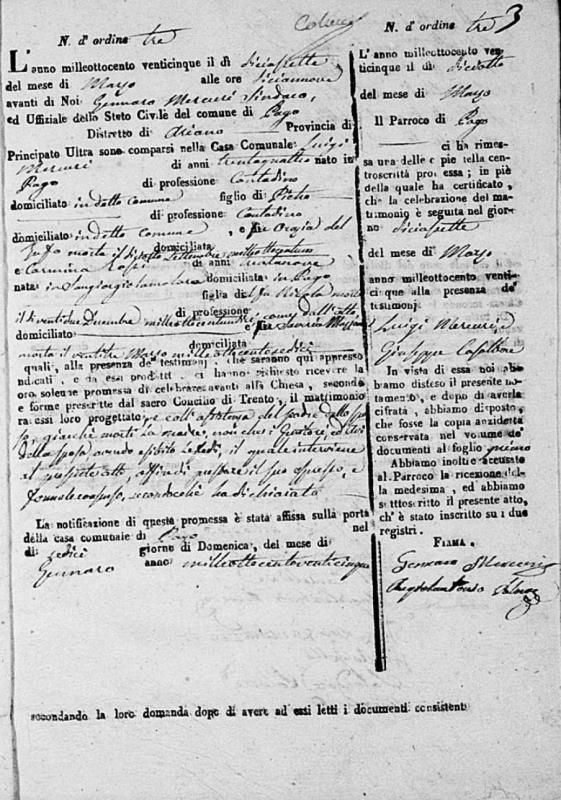 N. d'ordine tre
L'anno milleottocento venticinque il dì diciassette
del mese di Marzo alle ore diciannove
avanti di Noi Gennaro Mercuri Sindaco,
ed Uffiziale dello Stato Civile del comune di Pago
Distretto di Ariano Provincia di
Principato Ultra sono comparsi nella Casa Comunale Luigi
Mercuri di anni trentaquattro nato in
Pago di professione Contadino
domiciliato in detto Comune figlio di Pietro
di professione Contadino
domiciliato in detto Comune, e fu Orzia del
morta il Settembre domiciliata
e Carmina Rossi di anni
nata in Sangiorgio lamolara domiciliata in Pago
figlia di fu Nicola morto
il dì ventidue Dicembre di professione
domiciliato e fu
morta il ventitre Marzo milleottocentosedici domiciliata
quali, alla presenza de' testimonj, che saranno qui appresso
indicati, e da essi prodotti, ci hanno richiesto ricevere la
loro solenne promessa di celebrare avanti alla Chiesa, secondo
e forme prescritte dal sacro Concilio di Trento, il matrimonio
tra essi loro progettato; e coll'assistenza del padre dello spo
so, giacchè morti la madre, non che i Genitori,
della sposa avendo esibito le fedi, il quale interviene
al presente atto, affin di prestare il suo espresso, e
formale consenso, secondochè ha dichiarato
La notificazione di questa promessa è stata affissa sulla porta
della casa comunale di Pago nel
dì sedici giorno di Domenica, del mese di
Gennaro anno milleottocentoventicinque
secondando la loro domanda dopo di avere ad essi letti i documenti consistenti
N. d'ordine tre 3
L'anno milleottocento ven
ticinque il dì dieciotto
del mese di Marzo
Il Parroco di Pago
ci ha rimes
sa una delle copie della con
troscritta promessa; in piè
della quale ha certificato,
che la celebrazione del ma
trimonio è seguita nel gior
no diciassette
del mese di Marzo
anno milleottocento venti-
cinque alla presenza de'
testimonj
Luigi Mercuri
Giuseppe
In vista di essa noi ab
biamo disteso il presente no
tamento, e dopo di averla
cifrata, abbiamo disposto,
che fosse la copia anzidetta
conservata nel volume de'
documenti al foglio primo
Abbiamo inoltre accusato
al Parroco la ricezione del-
la medesima, ed abbiamo
sottoscritto il presente atto,
ch'è stato inscritto su i due
registri.
FIRMA.
Gennaro Mercuri